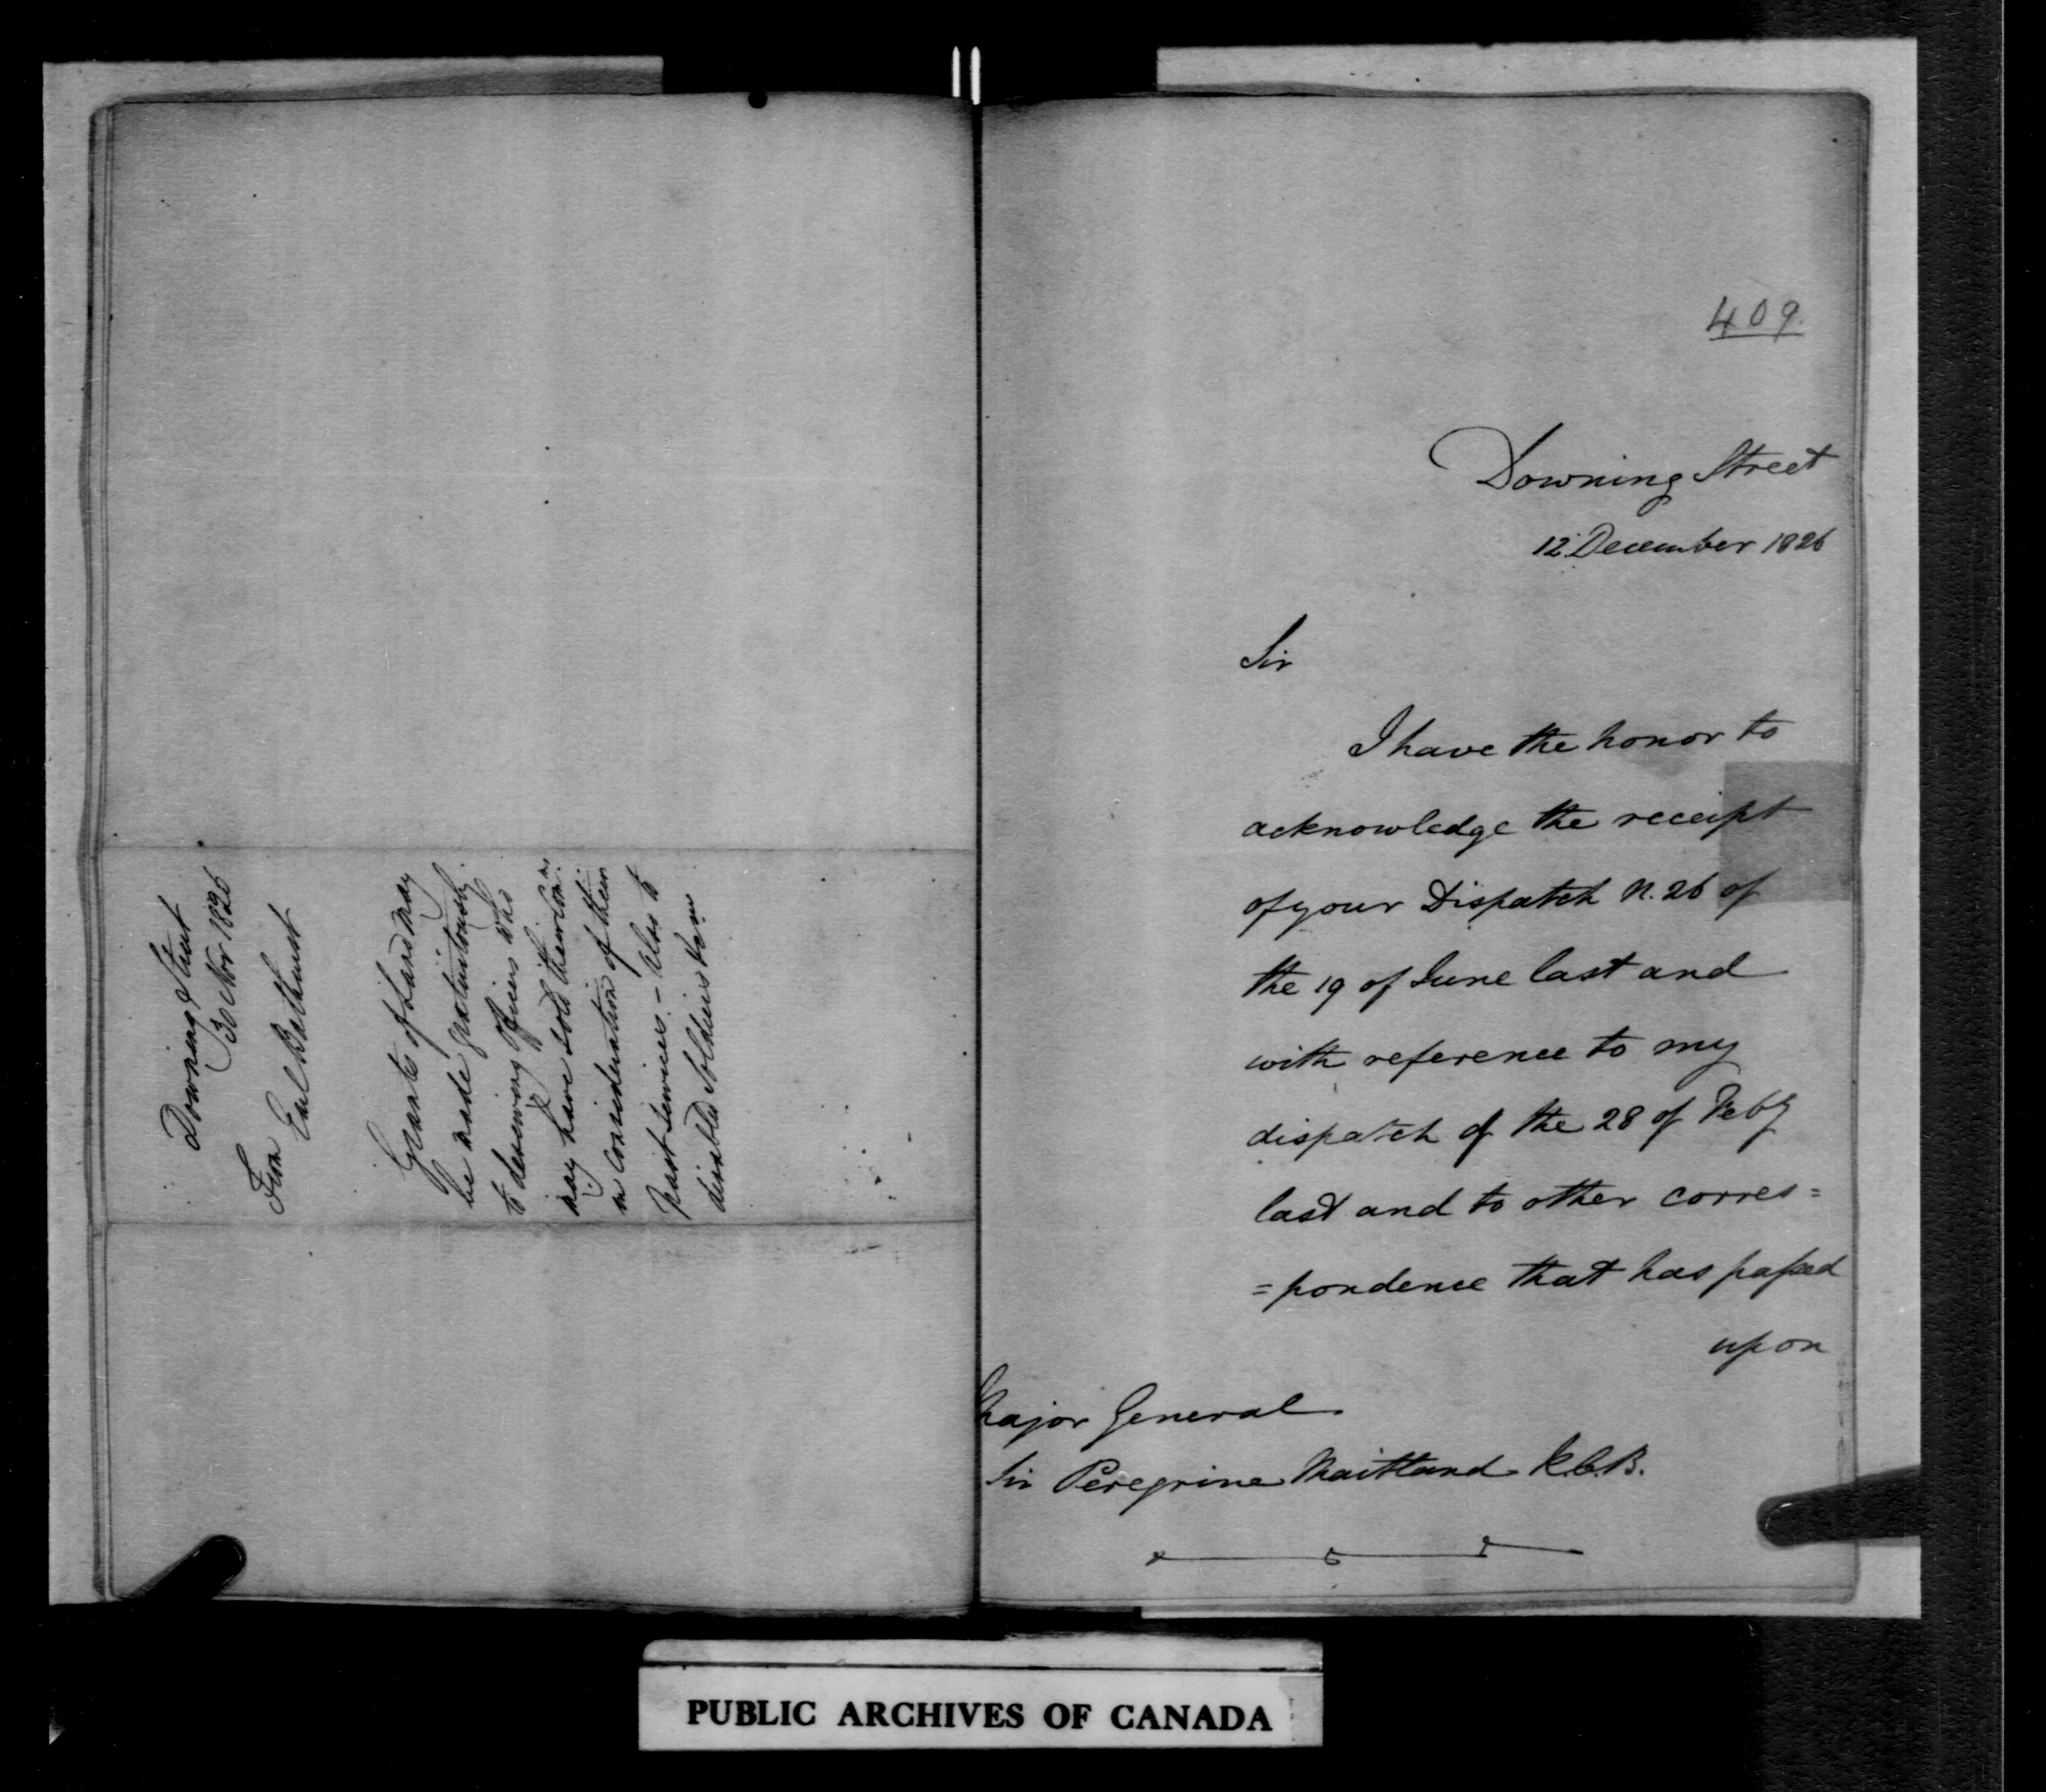 Downing Street
30 Nov 1826
From
Earl Bathurst
Grants of Land may
be made gratuitously
to deserving Officers who
may have sold their Comns.
in consideration of their
past services. - Also to
disabled Soldiers
409.
Downing Street
12 December 1826
Sir
I have the honor to
acknowledge the receipt
of your Dispatch N. 26 of
the 19 of June last and
with reference to my
dispatch of the 28 of Feby
last and to other corres=
=pondence that has passed
upon
Major General
Sir Peregrine Maitland K.C.B.
PUBLIC ARCHIVES OF CANADA